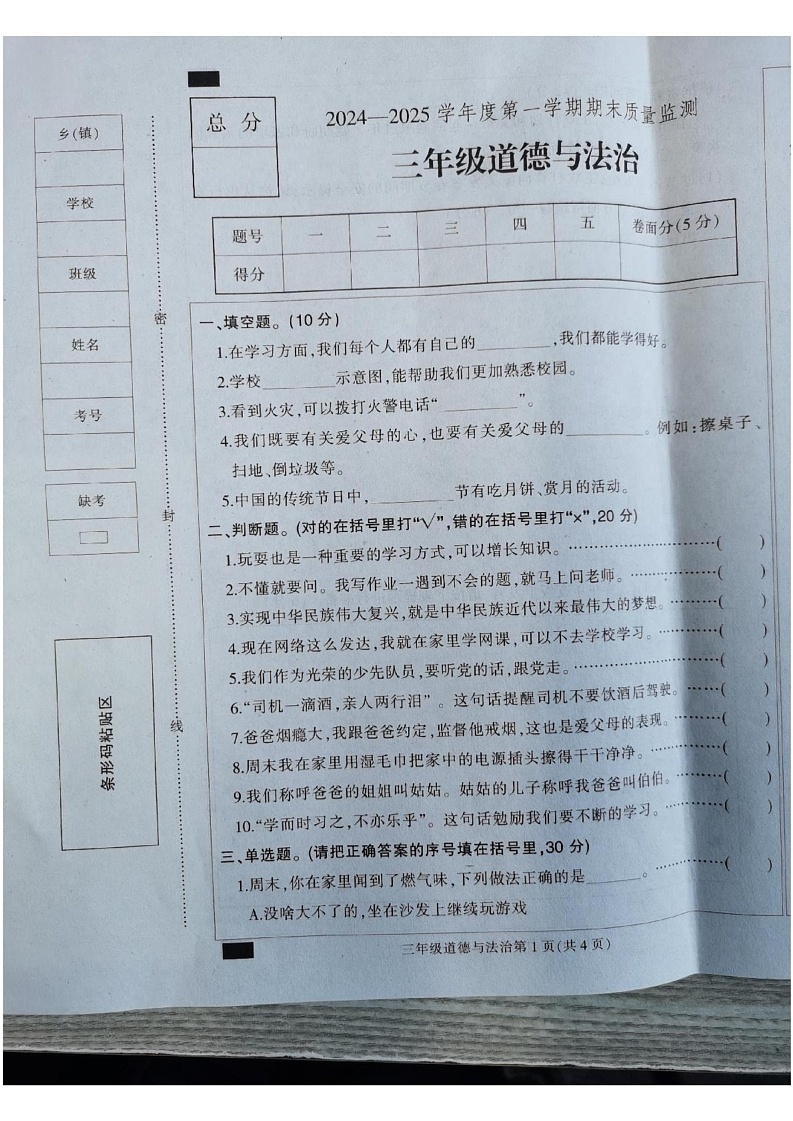 乡(镇)
学校
班级
姓名
考号
缺考
条形码粘贴区
密
封
线
总 分
2024—2025 学年度第一学期期末质量监测
三年级道德与法治
题号 一 二 三 四 五 卷面分(5分)
得分
一、填空题。(10 分)
1.在学习方面,我们每个人都有自己的________,我们都能学得好。
2.学校________示意图,能帮助我们更加熟悉校园。
3.看到火灾,可以拨打火警电话“________”。
4.我们既要有关爱父母的心,也要有关爱父母的________。例如:擦桌子、
扫地、倒垃圾等。
5.中国的传统节日中,________节有吃月饼、赏月的活动。
二、判断题。(对的在括号里打“√”,错的在括号里打“×”,20 分)
1.玩耍也是一种重要的学习方式,可以增长知识。………………( )
2.不懂就要问。我写作业一遇到不会的题,就马上问老师。…………( )
3.实现中华民族伟大复兴,就是中华民族近代以来最伟大的梦想。………( )
4.现在网络这么发达,我就在家里学网课,可以不去学校学习。………( )
5.我们作为光荣的少先队员,要听党的话,跟党走。………………( )
6.“司机一滴酒,亲人两行泪” 。这句话提醒司机不要饮酒后驾驶。……( )
7.爸爸烟瘾大,我跟爸爸约定,监督他戒烟,这也是爱父母的表现。………( )
8.周末我在家里用湿毛巾把家中的电源插头擦得干干净净。…………( )
9.我们称呼爸爸的姐姐叫姑姑。姑姑的儿子称呼我爸爸叫伯伯。………( )
10.“学而时习之,不亦乐乎”。这句话勉励我们要不断的学习。…………( )
三、单选题。(请把正确答案的序号填在括号里,30 分)
1.周末,你在家里闻到了燃气味,下列做法正确的是______。…………( )
A.没啥大不了的,坐在沙发上继续玩游戏
三年级道德与法治第 1 页(共 4 页)